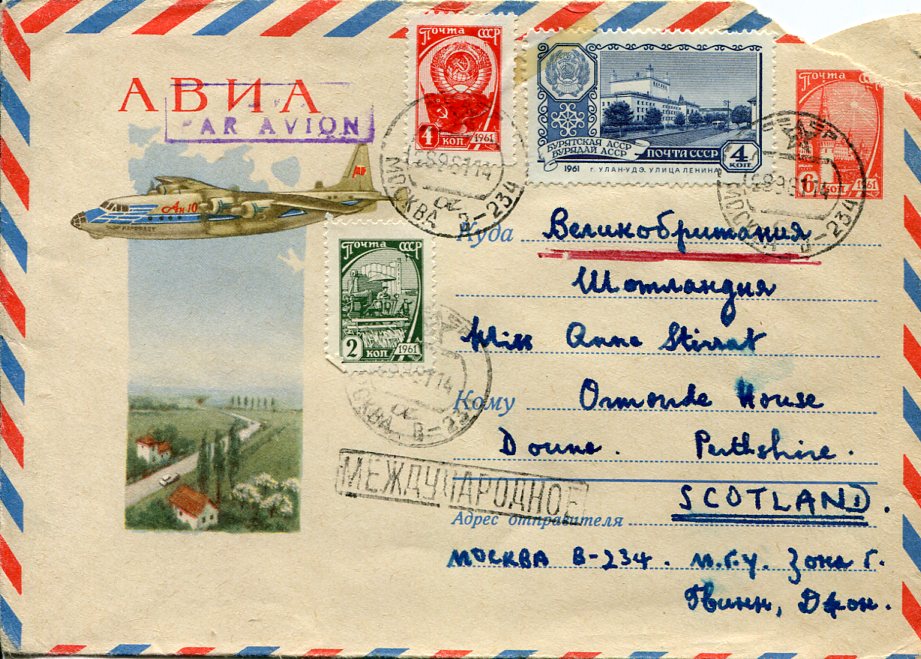 АВИА
PAR AVION
Почта СССР
4 коп 1961
БУРЯТСКАЯ АССР
БУРЯАДАЙ АССР
1961 г. УЛАН-УДЭ. УЛИЦА ЛЕНИНА
ПОЧТА СССР
4 КОП
Почта СССР
6 коп 1961
Ан 10
МОСКВА В-234
МОСКВА В-234
Почта СССР
2 коп 1961
МОСКВА В-234
Куда Великобритания
Шотландия
Miss Anne Stirrat
Кому Ormonde House
Doune. Perthshire.
SCOTLAND.
МЕЖДУНАРОДНОЕ
Адрес отправителя
МОСКВА В-234. М.Г.У. Зона Г.
Гвинн, Джон.